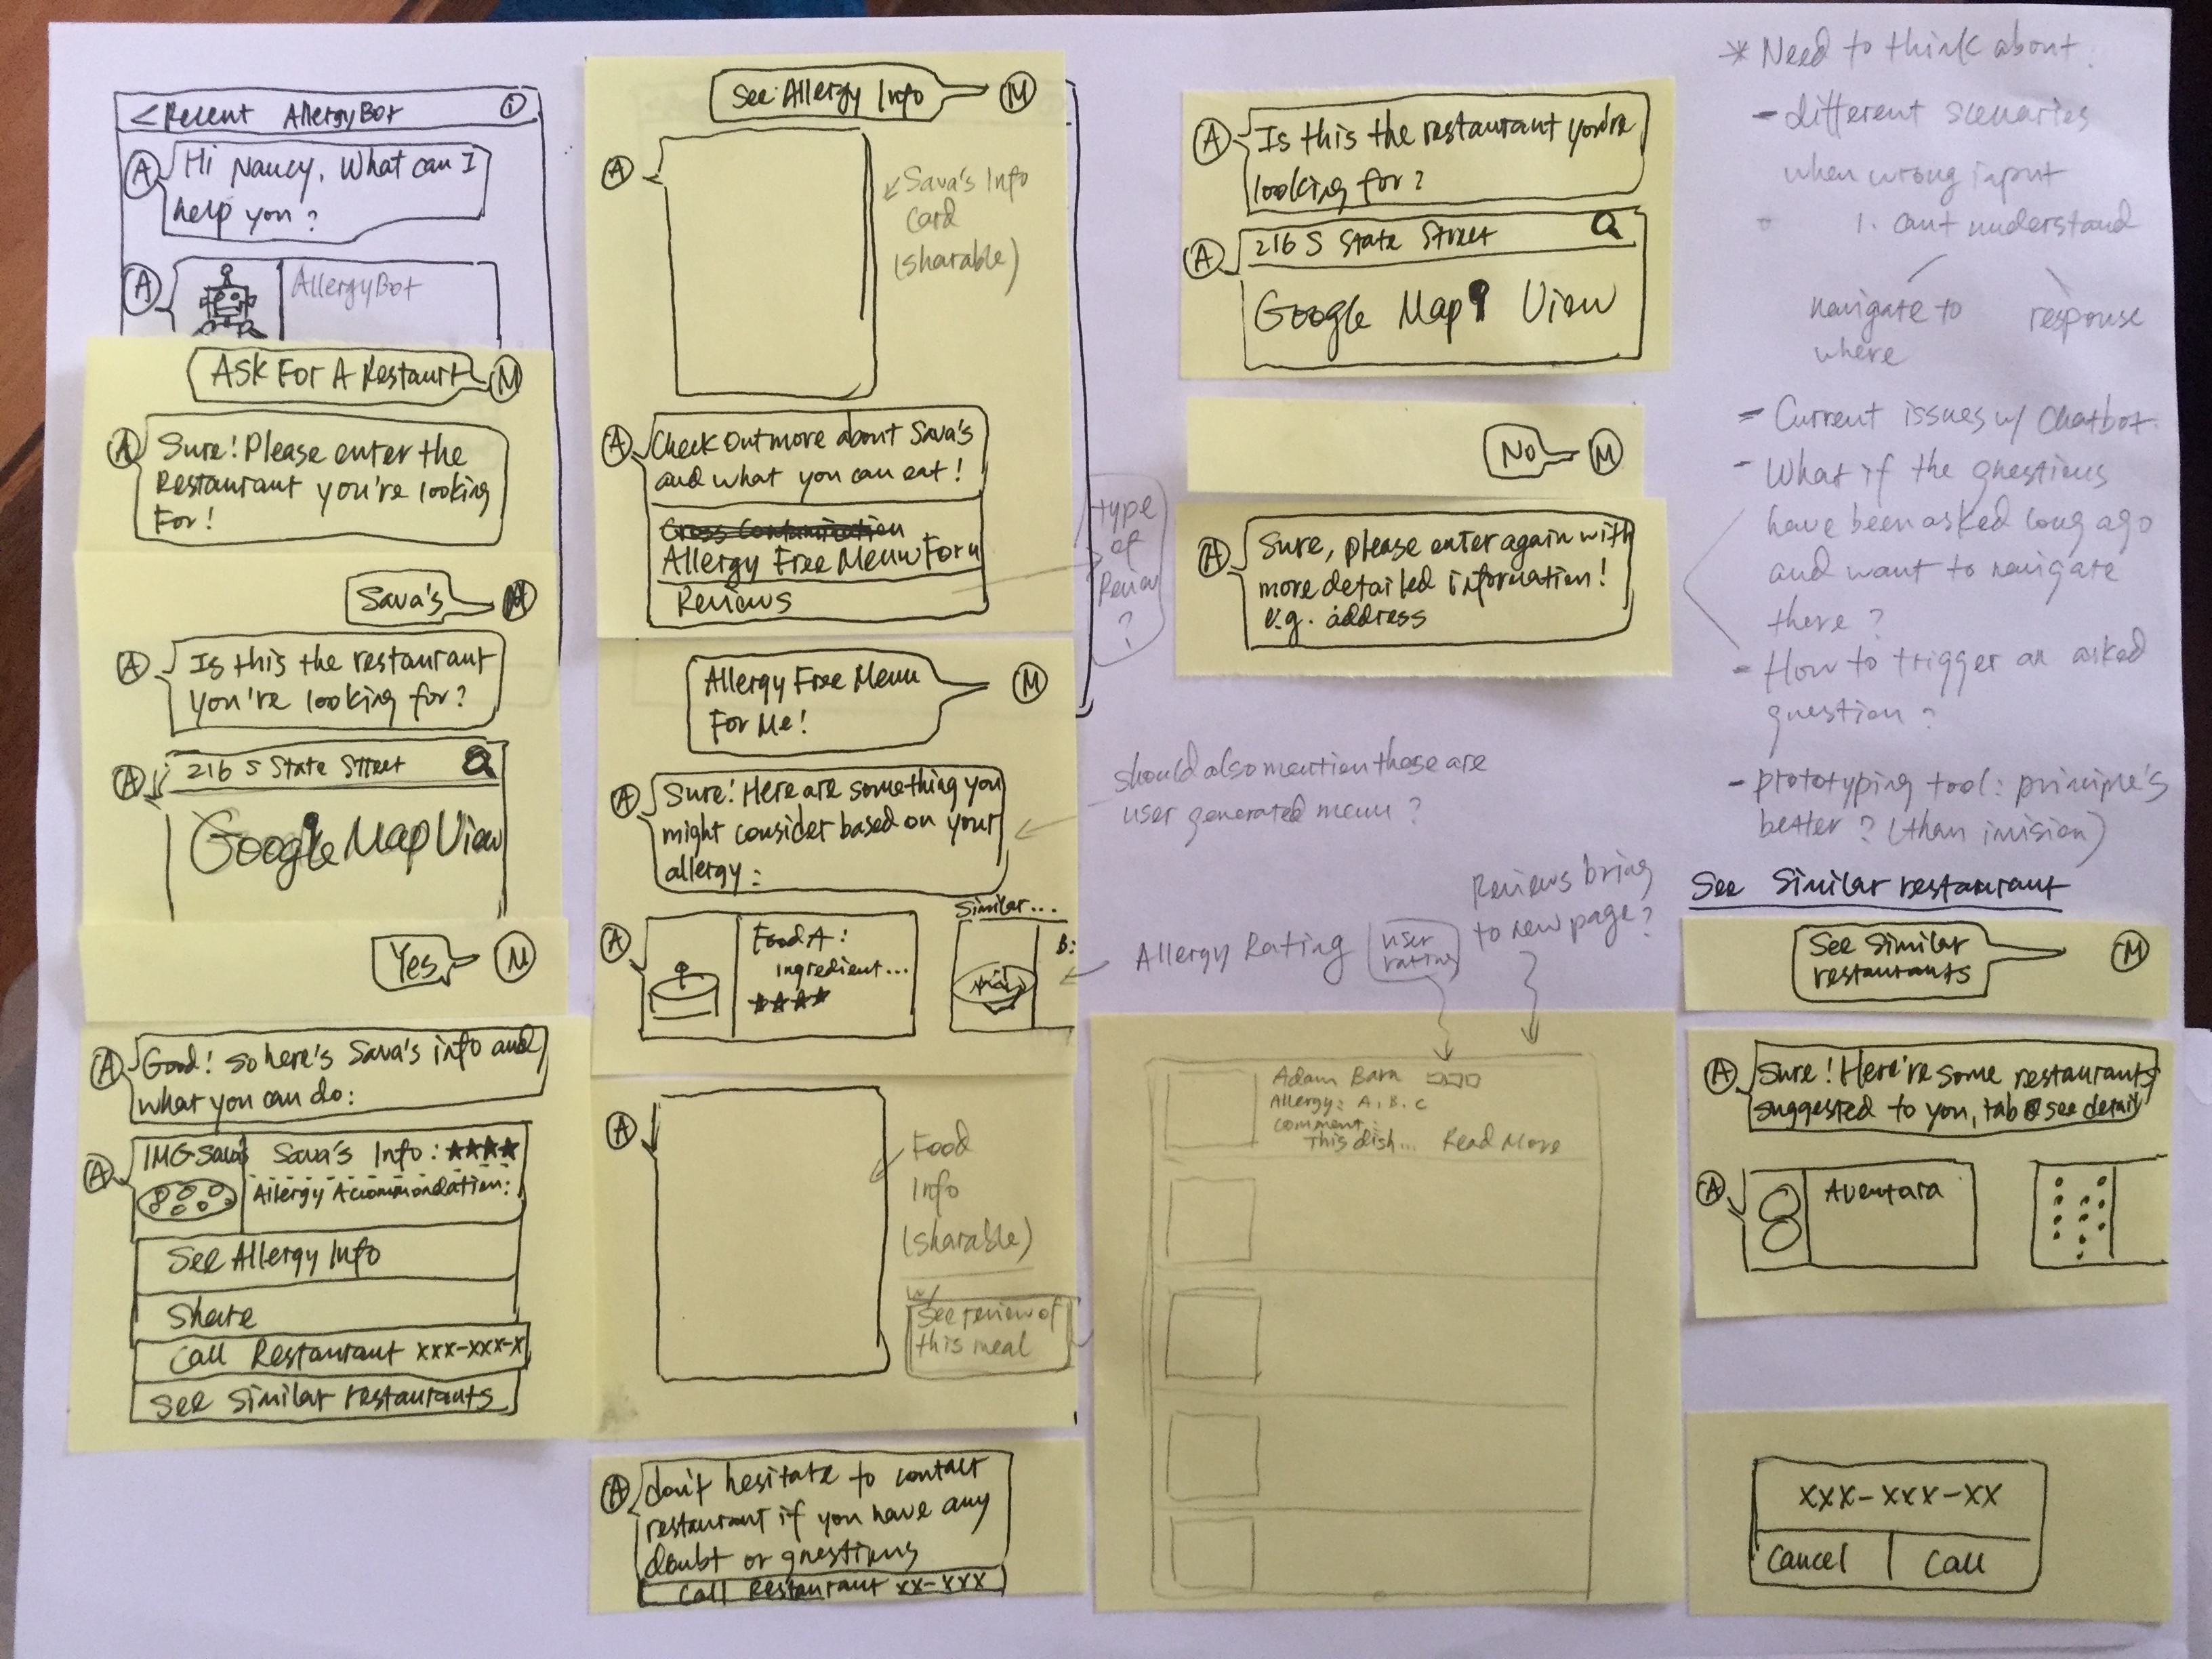 < Recent AllergyBot i
A Hi Nancy. What can I
help you?
A AllergyBot
ASK FOR A Restaurt M
A Sure! Please enter the
Restaurant you're looking
For!
Sava's M
A Is this the restaurant
you're looking for?
A 216 S State Street
Google Map View
Yes M
A Good! so here's Sava's info and
what you can do:
A IMG-Sava's Sava's Info: ★★★★
Allergy Accommondation:
See Allergy Info
Share
Call Restaurant xxx-xxx-x
See Similar restaurants
See Allergy Info M
A
Sava's Info
Card
(sharable)
A Check Out more about Sava's
and what you can eat!
Cross Contamination
Allergy Free Menu For u
Reviews
type
of
Review
?
Allergy Free Menu
For Me! M
A Sure! Here are something you
might consider based on your
allergy:
should also mention these are
user generated menu?
Similar...
A Food A:
ingredient...
★★★★
B:
Allergy Rating
user
rating
Reviews bring
to new page?
A
Food
Info
(sharable)
w/
See review of
this meal
A don't hesitate to contact
restaurant if you have any
doubt or questions
Call Restaurant xx-xxx
A Is this the restaurant you're
looking for?
A 216 S State Street
Google Map View
No M
A Sure, please enter again with
more detailed information!
e.g. address
Adam Bara
Allergy: A, B, C
comment:
This dish... Read More
* Need to think about:
- different scenarios
when wrong input
1. can't understand
navigate to
where
response
- Current issues w/ Chatbot.
- What if the questions
have been asked long ago
and want to navigate
there?
- How to trigger an asked
question?
- prototyping tool: principle's
better? (than invision)
See Similar restaurant
See Similar
restaurants M
A Sure! Here're some restaurants
suggested to you, tab see detail
A Aventara
xxx-xxx-xx
Cancel Call